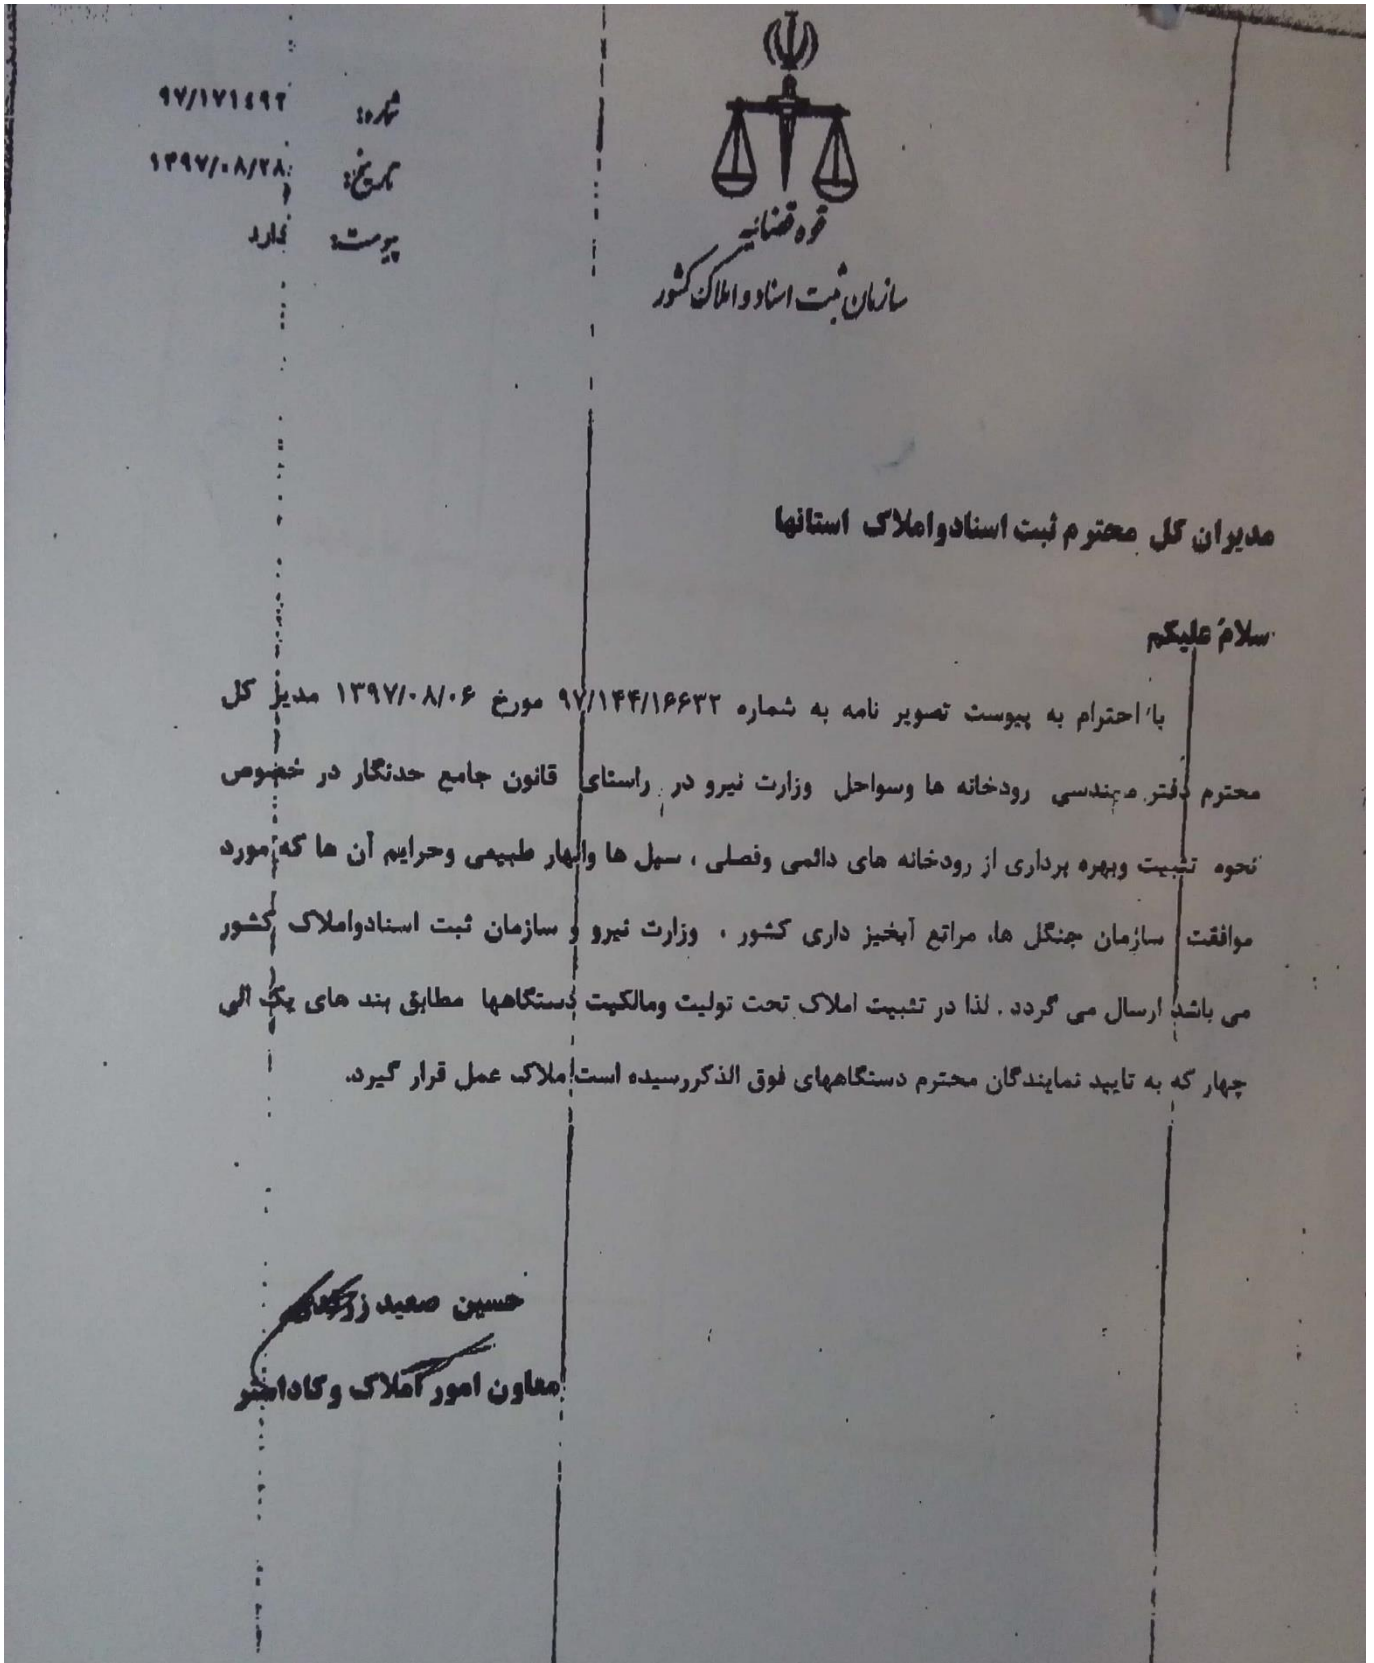 قوه قضائیه
سازمان ثبت اسناد و املاک کشور
شماره: ۹۷/۱۷۱٤۹۲
تاریخ: ۱۳۹۷/۰۸/۲۸
پیوست: ندارد
مدیران کل محترم ثبت اسنادواملاک استانها
سلام علیکم
با احترام به پیوست تصویر نامه به شماره ۹۷/۱۴۴/۱۶۶۳۲ مورخ ۱۳۹۷/۰۸/۰۶ مدیر کل
محترم دفتر مهندسی رودخانه ها وسواحل وزارت نیرو در راستای قانون جامع حدنگار در خصوص
نحوه تثبیت وبهره برداری از رودخانه های دائمی وفصلی ، سیل ها وانهار طبیعی وحرایم آن ها که مورد
موافقت سازمان جنگل ها، مراتع آبخیز داری کشور ، وزارت نیرو و سازمان ثبت اسنادواملاک کشور
می باشد ارسال می گردد . لذا در تثبیت املاک تحت تولیت ومالکیت دستگاهها مطابق بند های یک الی
چهار که به تایید نمایندگان محترم دستگاههای فوق الذکررسیده است ملاک عمل قرار گیرد.
حسین صعید
معاون امور املاک وکاداستر